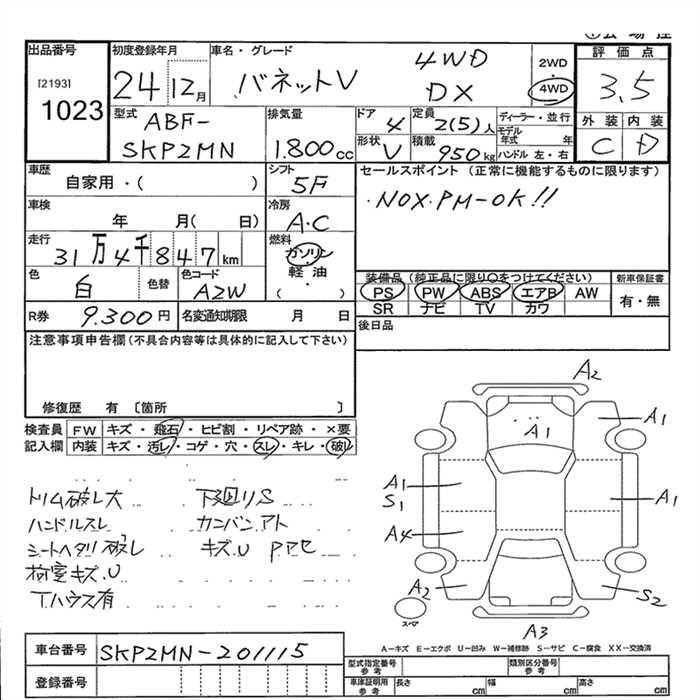 出品番号
[2193]
1023
初度登録年月
24 12月
車名・グレード
バネットV
4WD
DX
2WD
4WD
評価点
3.5
外装 内装
C D
型式
ABF-
SKP2MN
排気量
1.800cc
ドア
4
定員
2(5)人
ディーラー・並行
モデル年式 年
ハンドル 左・右
形状
V
積載
950kg
車歴
自家用・( )
シフト
5F
セールスポイント(正常に機能するものに限ります)
・NOX.PM-OK!!
車検
年 月( 日)
冷房
A・C
走行
31万4千847km
燃料
ガソリン
軽・油
( )
色
白
色替
色コード
A2W
装備品(純正品に限り〇をつけてください)
PS PW ABS エアB AW
SR ナビ TV カワ
新車保証書
有・無
R券 9.300円
名変通知期限 月 日
後日品
注意事項申告欄(不具合内容等は具体的に記入して下さい)
修復歴 有〔箇所 〕
検査員
記入欄
FW キズ・飛石・ヒビ割・リペア跡・×要
内装 キズ・汚レ・コゲ・穴・スレ・キレ・破レ
トリム破レ大 下廻りS
ハンドルスレ カンバンアト
シートヘタリ破レ キズ.U Pアセ
荷室キズ.U
Tハウス有
A2
A1
A1
A1
S1
A1
A4
A2
S2
スペア
A3
A-キズ E-エクボ U-凹み W-補修跡 S-サビ C-腐食 XX-交換済
車台番号 SKP2MN-201115
登録番号
型式指定番号
参考
類別区分番号
参考
車庫証明用
参考
長さ cm
幅 cm
高さ cm